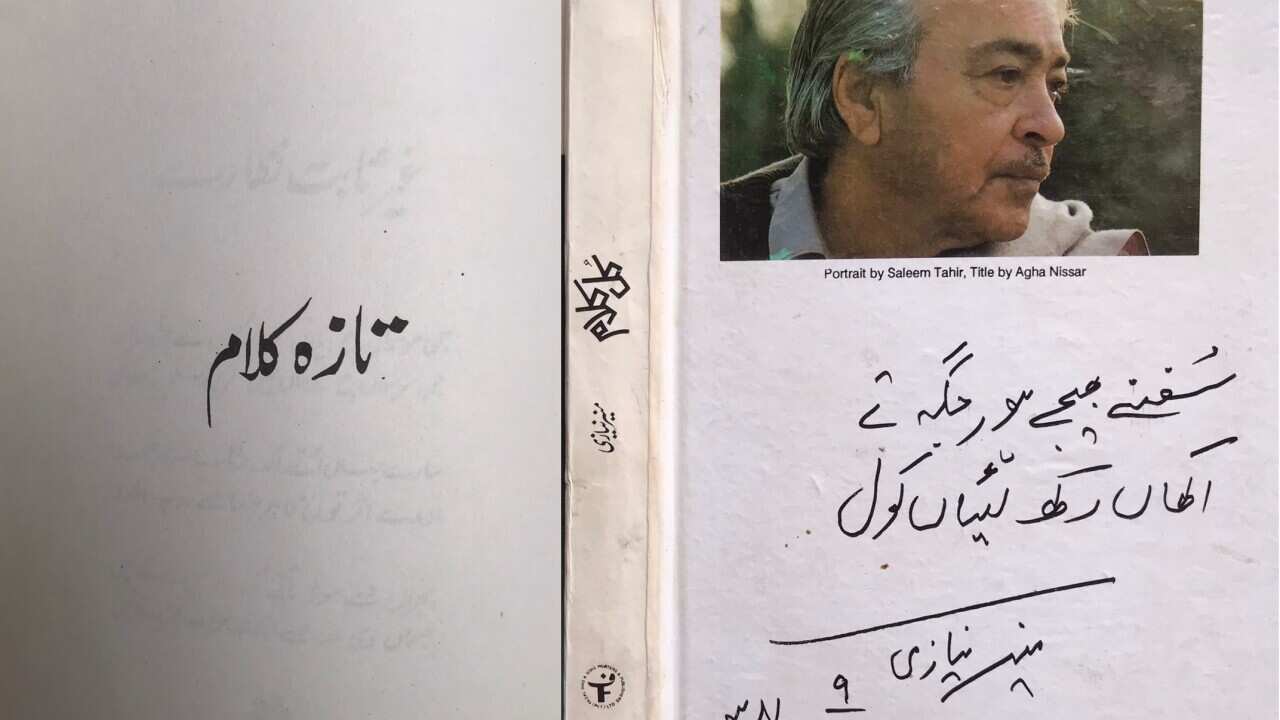 تازہ کلام
کل کلام
منیر نیازی
Portrait by Saleem Tahir, Title by Agha Nissar
سُفنے بھیجے ہور جگہ تے
اکھاں رکھ لئیاں کول
منیر نیازی
۹